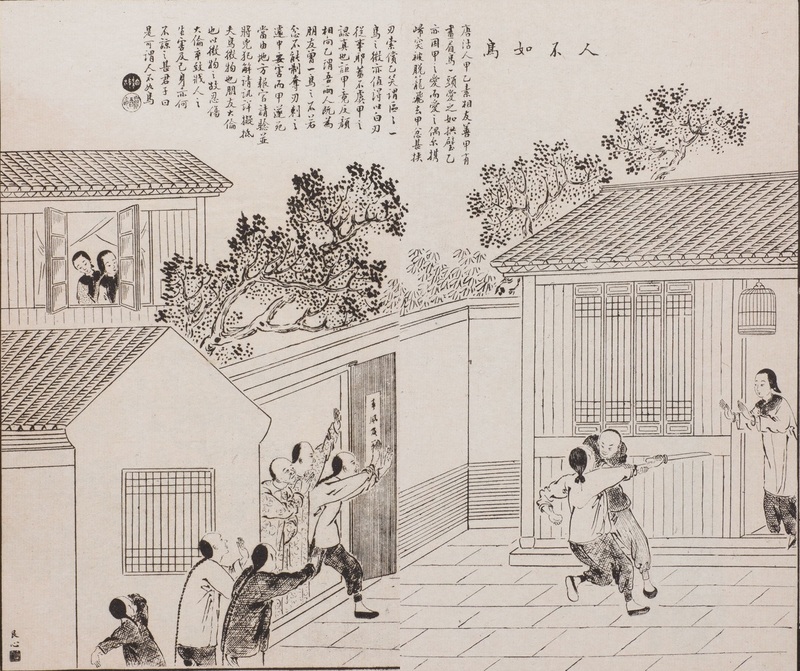 人不如鳥
唐沽人甲乙素相友善甲有
畫眉鳥一頭愛之如拱璧乙
亦因甲之愛而愛之偶爾携
啼突被脫籠飛去甲忿甚挾
刃索償乙笑謂區之一
鳥之微亦值得以白刃
從事耶蓋不虞甲之
認真也詎甲竟反顏
相向乙謂吾兩人既為
朋友曾一鳥之不若
忿不能制奪刃刺之
遽中要害而甲遂死
當由地方報官請驗並
將兇犯解請訊詳擬抵
夫鳥微物也朋友大倫
也以微物之故忍傷
大倫卒致戕人之
生害及己身亦何
不諒之甚君子曰
是可謂人不如鳥
艮心